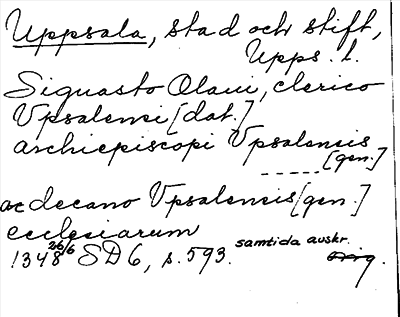 Uppsala, stad och stift,
Upps. l.
Siguasto Olaui, clerico
Vpsalensi [dat.]
archiepiscopi Vpsalensis
----- [gen.]
ac decano Vpsalensis [gen.]
ecclesiarum
1348 26/6 SD 6, s. 593. samtida avskr.
orig.